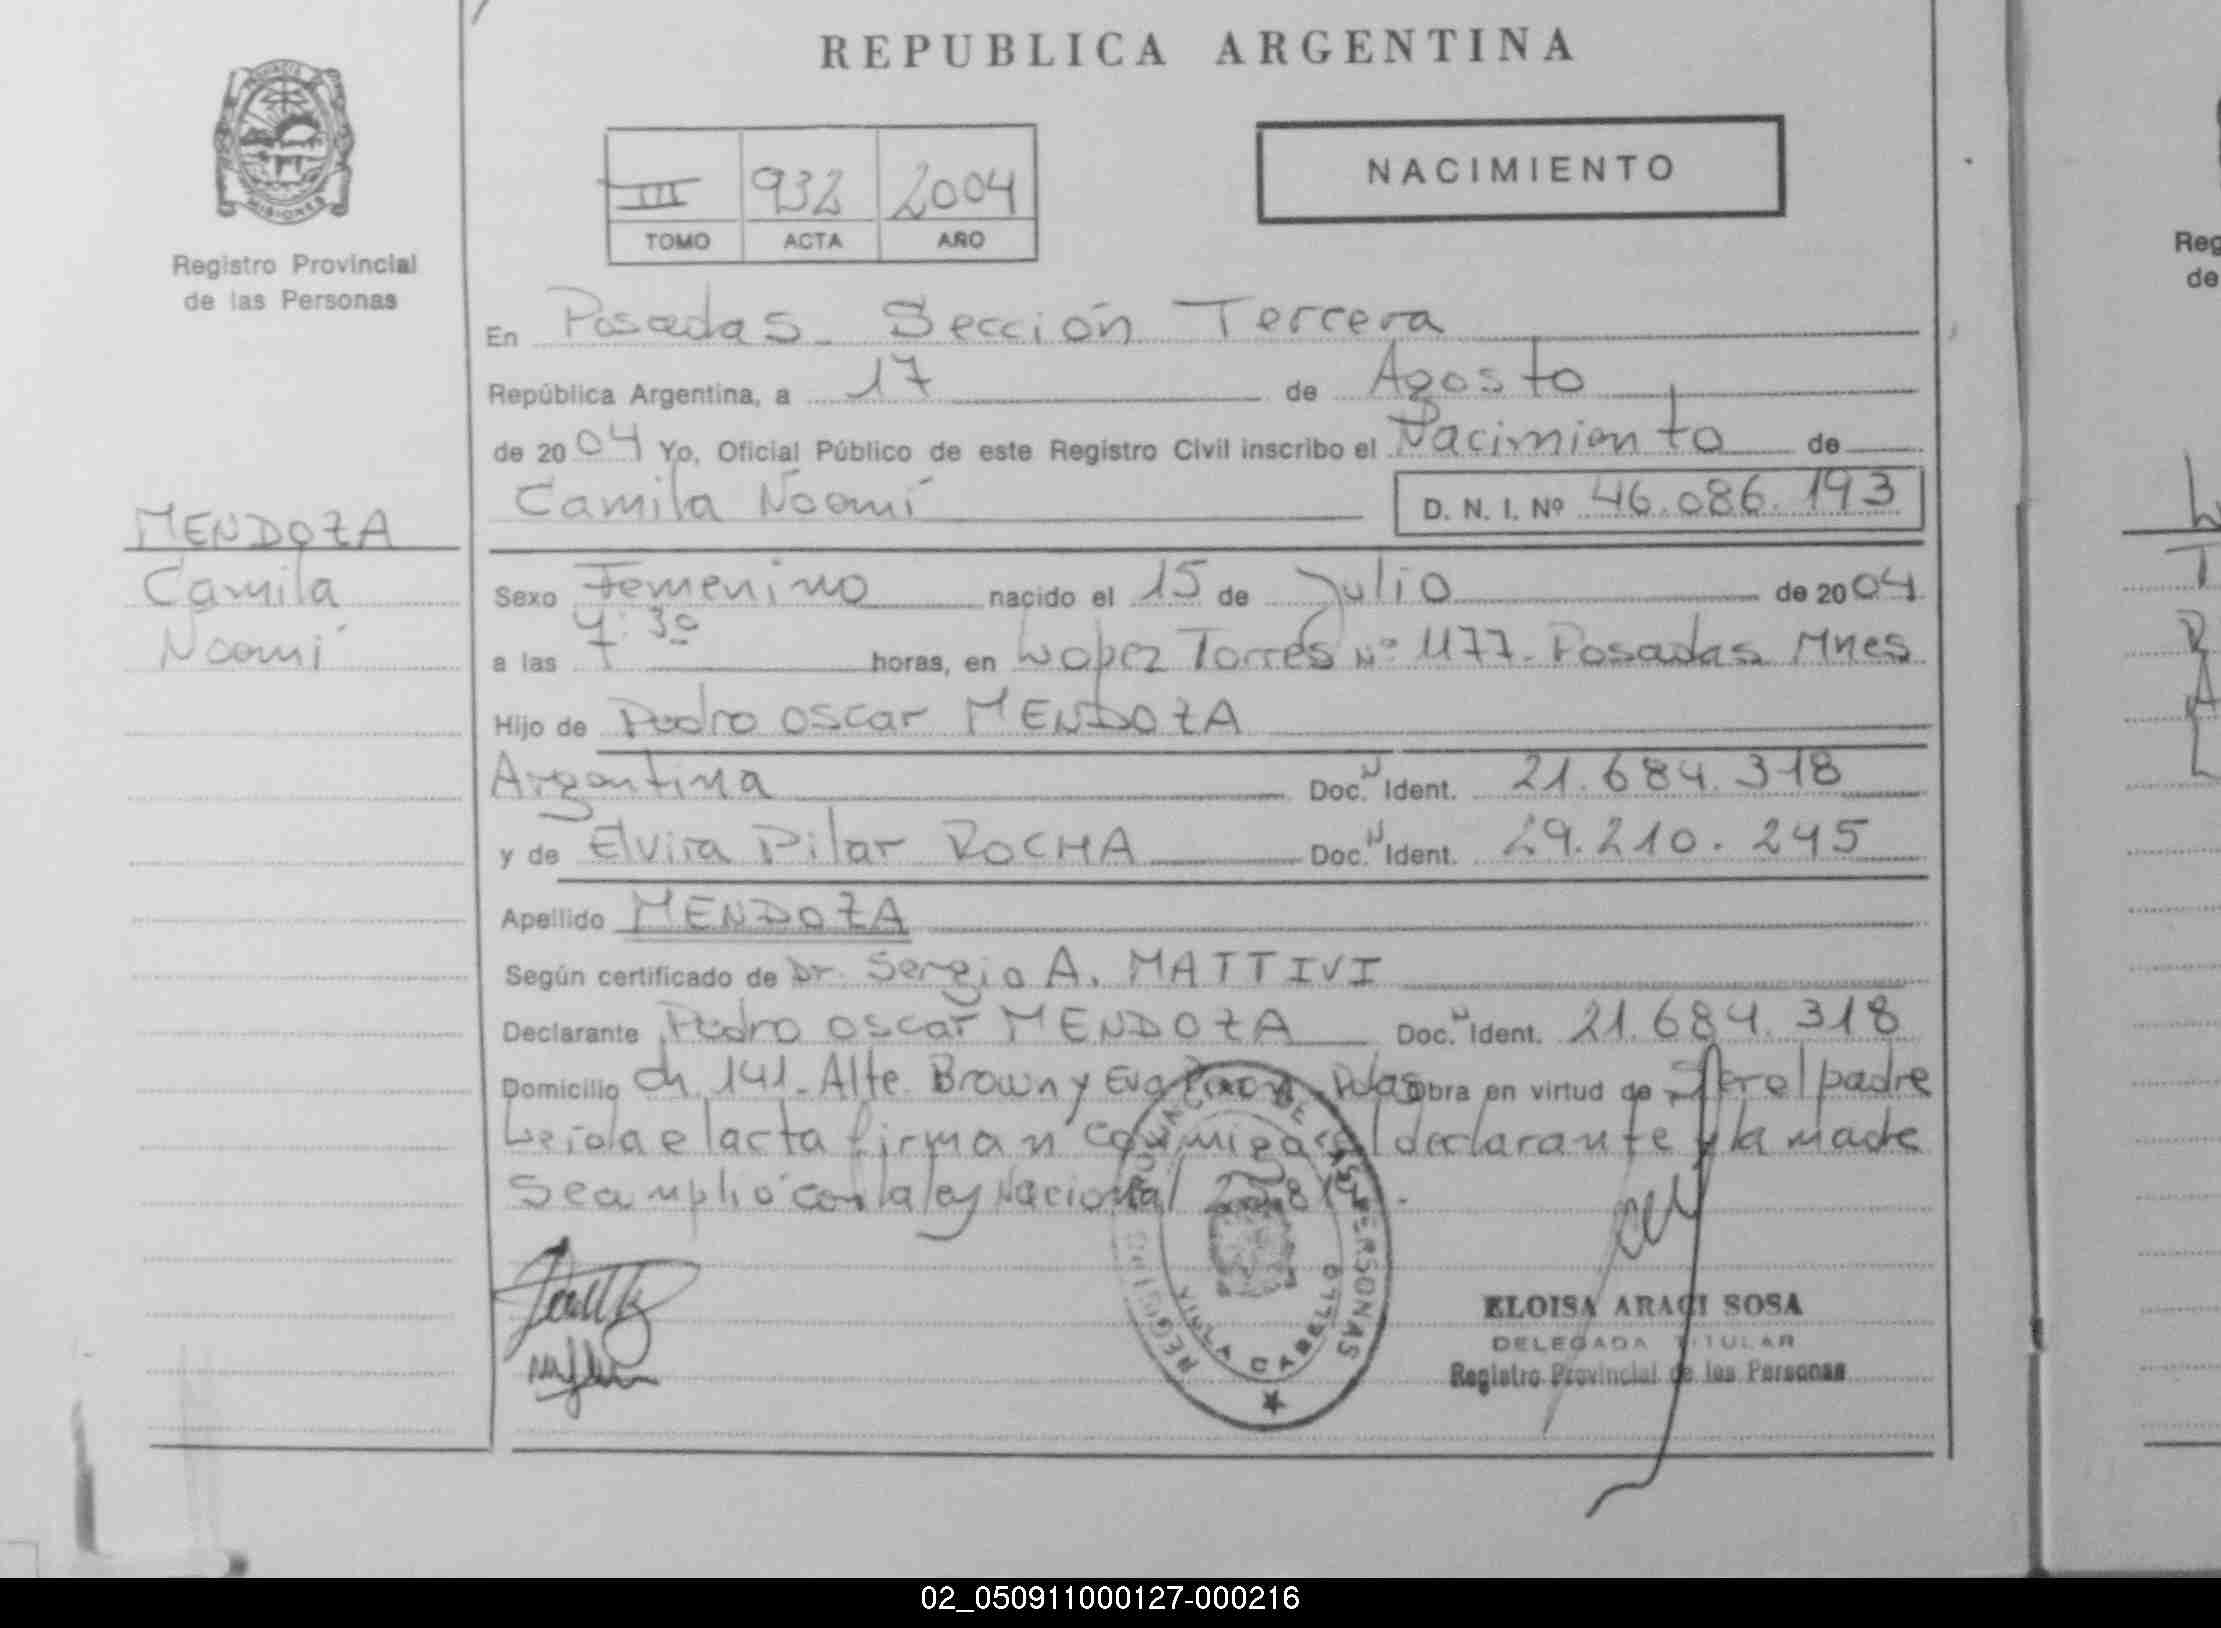 REPUBLICA ARGENTINA
PROVINCIA
MISIONES
Registro Provincial
de las Personas
III 932 2004
TOMO ACTA AÑO
NACIMIENTO
En Posadas - Sección Tercera
República Argentina, a 17 de Agosto
de 2004 Yo, Oficial Público de este Registro Civil inscribo el Nacimiento de
Camila Noemí D. N. I. Nº 46.086.193
MENDOZA
Camila
Noemí
Sexo Femenino nacido el 15 de Julio de 2004
a las horas, en Lopez Torres Nº 1177 - Posadas Mnes
Hijo de Pedro Oscar MENDOZA
Argentina Doc. N Ident. 21.684.318
y de Elvira Pilar ROCHA Doc. N Ident. 29.210.245
Apellido MENDOZA
Según certificado de Dr. Sergio A. MATTIVI
Declarante Pedro Oscar MENDOZA Doc. N Ident. 21.684.318
Domicilio Ch. 141 - Alte. Brown y Eva Peron - Pdas obra en virtud de Ser el padre
Leida el acta firman conmigo el declarante y la madre
Se cumplió con la ley Nacional
REGISTRO PROVINCIAL DE LAS PERSONAS
VILLA CABELLO
ELOISA ARACI SOSA
DELEGADA TITULAR
Registro Provincial de las Personas
Reg
de
02_050911000127-000216